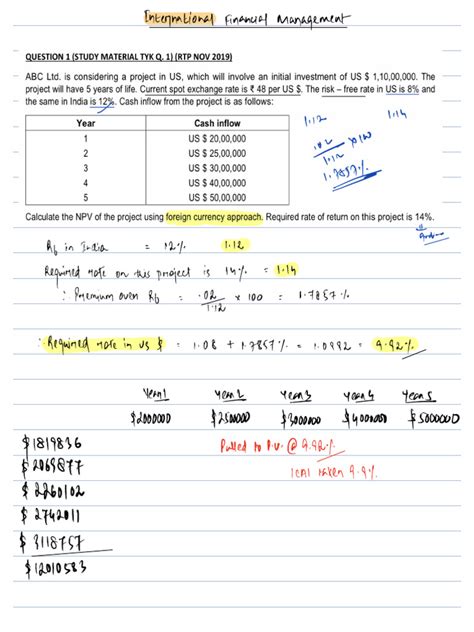 International Financial Management
QUESTION 1 (STUDY MATERIAL TYK Q. 1) (RTP NOV 2019)
ABC Ltd. is considering a project in US, which will involve an initial investment of US $ 1,10,00,000. The
project will have 5 years of life. Current spot exchange rate is ₹ 48 per US $. The risk – free rate in US is 8% and
the same in India is 12%. Cash inflow from the project is as follows:
Year Cash inflow
1 US $ 20,00,000
2 US $ 25,00,000
3 US $ 30,00,000
4 US $ 40,00,000
5 US $ 50,00,000
1.12 1.14
.02 × 100
1.12
1.7857%
Calculate the NPV of the project using foreign currency approach. Required rate of return on this project is 14%.
Rf in India = 12% 1.12
Required rate on this project is 14% = 1.14
∴ Premium over Rf = .02 × 100 = 1.7857%
1.12
∴ Required rate in US $ = 1.08 + 1.7857% = 1.0992 = 9.92%
Year 1 Year 2 Year 3 Year 4 Year 5
$2000000 $2500000 $3000000 $4000000 $5000000
$1819836 Pulled to P.V. @ 9.92%
$2069877
$2260102
$2742011
$3118757
$12010583